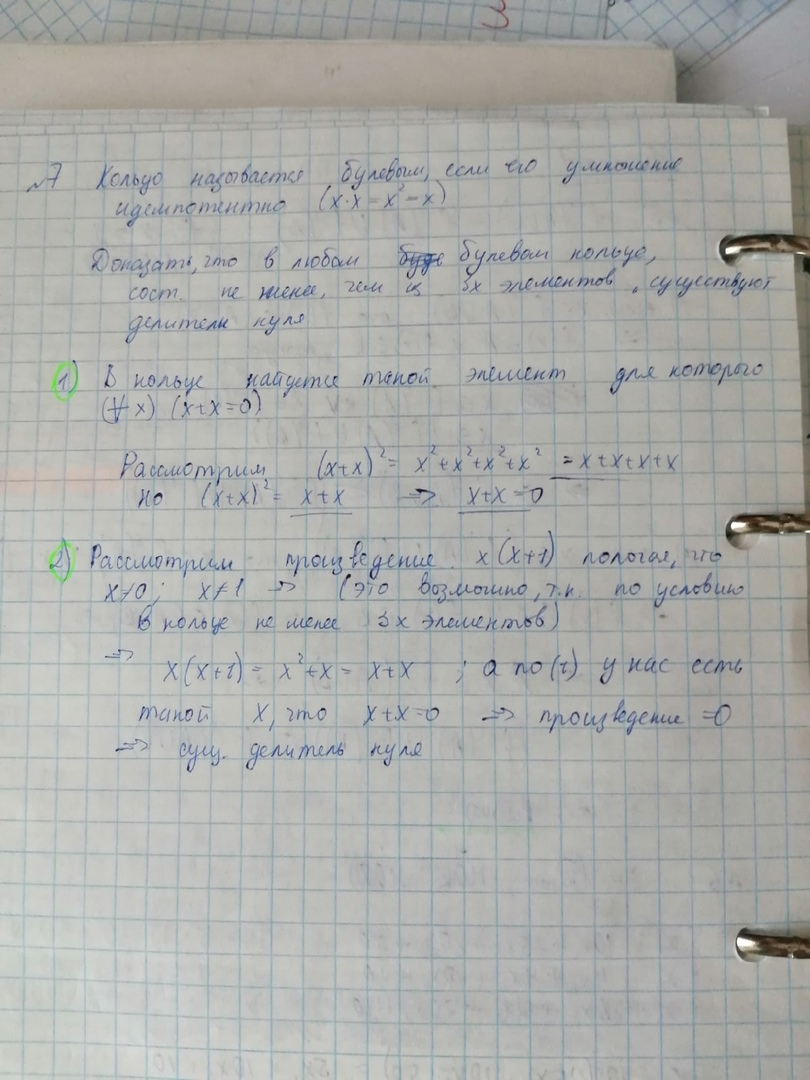 №7 Кольцо называется булевым, если его умножение
идемпотентно (x·x = x² = x)
Доказать, что в любом булевом кольце,
сост. не менее, чем из 3х элементов, существуют
делители нуля
1) В кольце найдется такой элемент для которого
(∀x) (x+x=0)
Рассмотрим (x+x)² = x²+x²+x²+x² = x+x+x+x
но (x+x)² = x+x ⇒ x+x=0
2) Рассмотрим произведение x(x+1) пологая, что
x≠0; x≠1 ⇒ (это возможно, т.к. по условию
в кольце не менее 3х элементов)
⇒ x(x+1) = x²+x = x+x ; а по (1) у нас есть
такой x, что x+x=0 ⇒ произведение =0
⇒ сущ. делитель нуля